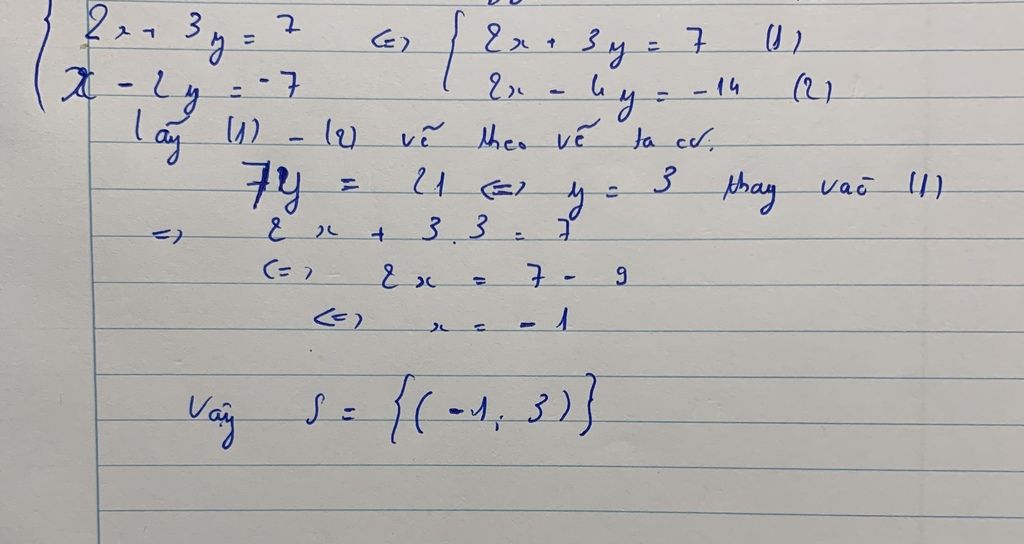 { 2x + 3y = 7 <=> { 2x + 3y = 7 (1)
x - 2y = -7 2x - 4y = -14 (2)
lấy (1) - (2) vế theo vế ta có:
7y = 21 <=> y = 3 thay vào (1)
=> 2x + 3.3 = 7
<=> 2x = 7 - 9
<=> x = -1
Vậy S = {(-1; 3)}